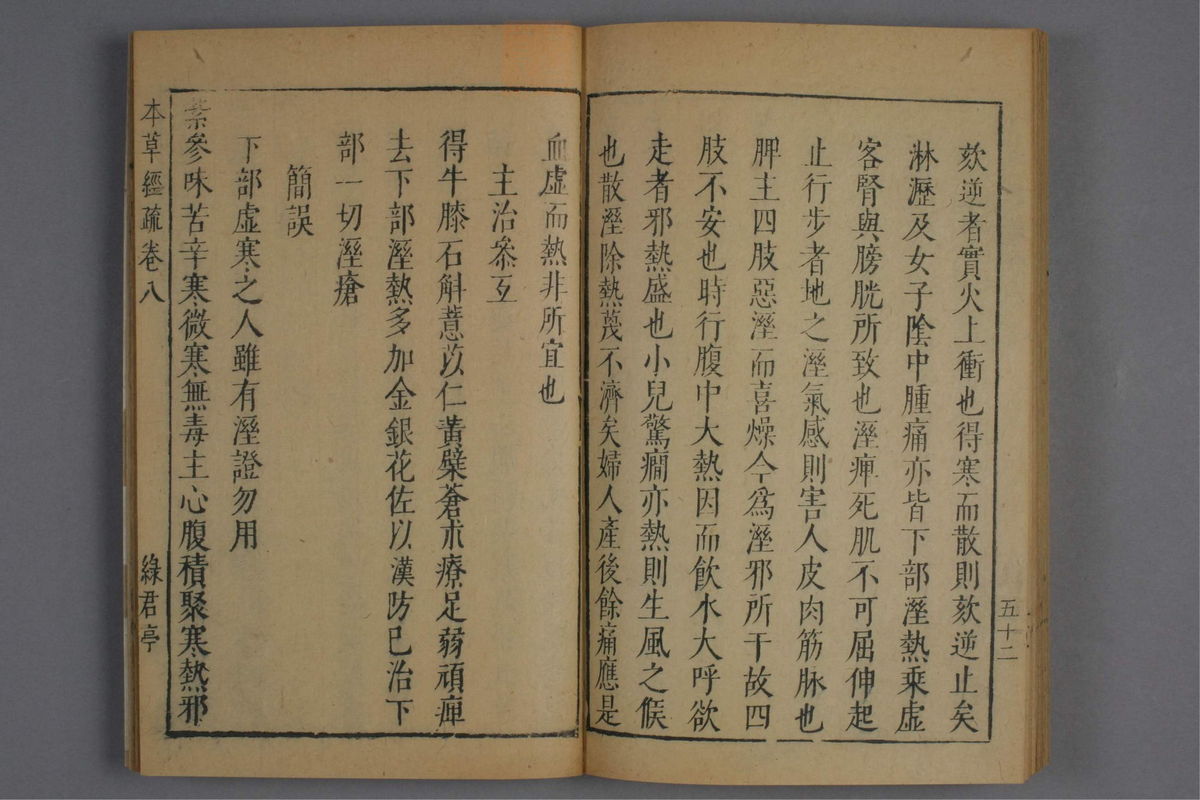 欬逆者實火上衝也得寒而散則欬逆止矣
淋瀝及女子陰中腫痛亦皆下部溼熱乘虛
客腎與膀胱所致也溼痺死肌不可屈伸起
止行步者地之溼氣感則害人皮肉筋脉也
脾主四肢惡溼而喜燥今爲溼邪所干故四
肢不安也時行腹中大熱因而飲水大呼欲
走者邪熱盛也小兒驚癇亦熱則生風之候
也散溼除熱蔑不濟矣婦人產後餘痛應是
五十二
血虛而熱非所宜也
主治叅互
得牛膝石斛薏苡仁黃蘗蒼朮療足弱頑痺
去下部溼熱多加金銀花佐以漢防已治下
部一切溼瘡
簡誤
下部虛寒之人雖有溼證勿用
紫參味苦辛寒微寒無毒主心腹積聚寒熱邪
本草經疏卷八
綠君亭